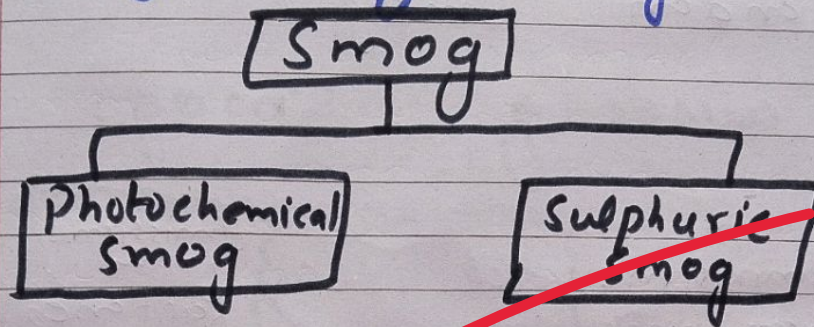 Smog
Photochemical
smog
Sulphuric
smog